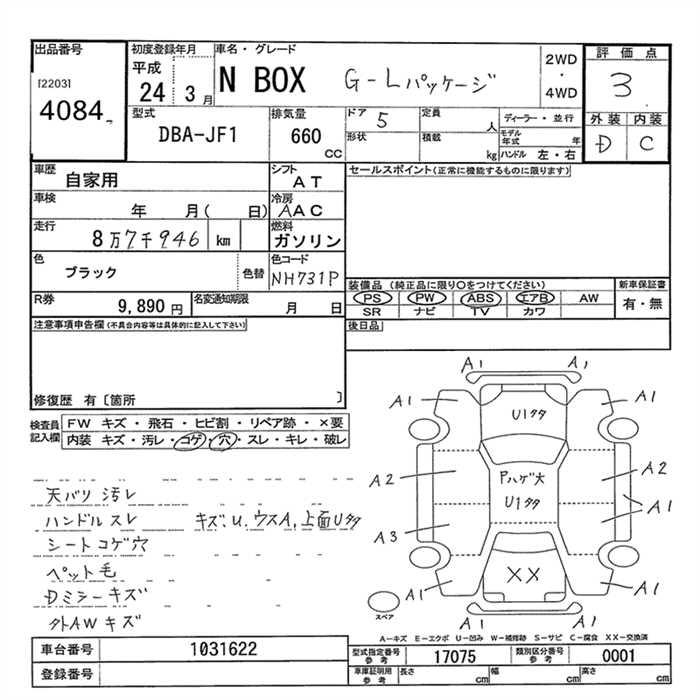 出品番号
[2203]
4084
初度登録年月
平成
24 3月
車名・グレード
N BOX G-Lパッケージ
2WD
・
4WD
評価点
3
外装 内装
D C
型式
DBA-JF1
排気量
660
CC
ドア 5
形状
定員 人
積載 kg
ディーラー・並行
モデル年式 年
ハンドル 左・右
車歴
自家用
シフト
AT
セールスポイント(正常に機能するものに限ります)
車検
年 月( 日)
冷房
AAC
走行
8万7千946 km
燃料
ガソリン
色
ブラック
色替
色コード
NH731P
装備品(純正品に限り○をつけてください)
PS PW ABS エアB AW
SR ナビ TV カワ
新車保証書
有・無
R券
9,890円
名変通知期限
月 日
後日品
注意事項申告欄(不具合内容等は具体的に記入して下さい)
修復歴 有〔箇所 〕
検査員記入欄
FW キズ・飛石・ヒビ割・リペア跡・×要
内装 キズ・汚レ・コゲ・穴・スレ・キレ・破レ
天バリ汚レ
ハンドルスレ
キズ、U、ウスA、上面Uタタ
シートコゲ穴
ペット毛
Dミラーキズ
外AWキズ
A1 A1
A1 A1
U1タタ
A2 A2
Pハゲ大
U1タタ
A1
A3
XX
A1 A1
A1 A1
スペア
A-キズ E-エクボ U-凹み W-補修跡 S-サビ C-腐食 XX-交換済
車台番号
1031622
登録番号
型式指定番号
参考
17075
類別区分番号
参考
0001
車庫証明用
参考
長さ cm
幅 cm
高さ cm